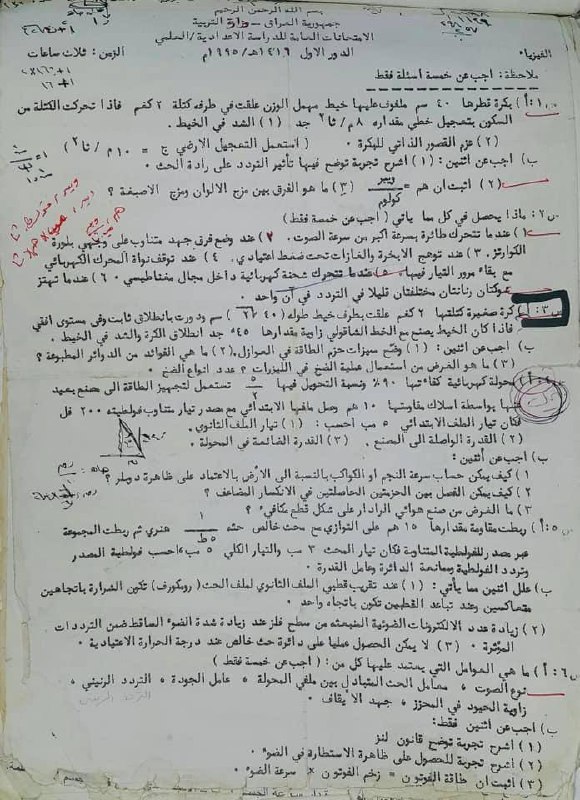 بسم الله الرحمن الرحيم
جمهورية العراق - وزارة التربية
الامتحانات العامة للدراسة الاعدادية / العلمي
الفيزياء
الدور الاول ١٤١٦هـ / ١٩٩٥م
الزمن : ثلاث ساعات
ملاحظة : اجب عن خمسة أسئلة فقط
س١: أ) بكرة قطرها ٤٠ سم ملفوف عليها خيط مهمل الوزن علقت في طرفه كتلة ٢ كغم فاذا تحركت الكتلة من
السكون بتعجيل خطي مقداره ٨ م/ثا٢ جد (١) الشد في الخيط .
(٢) عزم القصور الذاتي للبكرة . (استعمل التعجيل الارضي ج = ١٠ م/ثا٢)
ب) اجب عن اثنين : (١) اشرح تجربة توضح فيها تأثير التردد على رادة الحث .
(٢) اثبت ان هم = ويبر / كولوم (٣) ما هو الفرق بين مزج الالوان ومزج الاصبغة ؟
س٢: ماذا يحصل في كل مما يأتي ( اجب عن خمسة فقط )
١) عندما تتحرك طائرة بسرعة اكبر من سرعة الصوت . ٢) عند وضع فرق جهد متناوب على وجهي بلورة
الكوارتز . ٣) عند توهج الابخرة والغازات تحت ضغط اعتيادي . ٤) عند توقف نواة المحرك الكهربائي
مع بقاء مرور التيار فيها . ٥) عندما تتحرك شحنة كهربائية داخل مجال مغناطيسي . ٦) عندما تهتز
شوكتان رنانتان مختلفتان قليلا في التردد في آن واحد .
س٣: أ) كرة صغيرة كتلتها ٢ كغم علقت بطرف خيط طوله سم ودورت بانطلاق ثابت وفي مستوى افقي
فاذا كان الخيط يصنع مع الخط الشاقولي زاوية مقدارها ٤٥° جد انطلاق الكرة والشد في الخيط .
ب) اجب عن اثنين : (١) وضح ميزات حزم الطاقة في العوازل . (٢) ما هي الفوائد من الدوائر المطبوعة ؟
(٣) ما هو الغرض من استعمال عملية الضخ في الليزرات ؟ عدد انواع الضخ .
أ) محولة كهربائية كفاءتها ٩٠٪ ونسبة التحويل فيها ٥/٢ تستعمل لتجهيز الطاقة الى مصنع بعيد
عنها بواسطة اسلاك مقاومتها ١٠ هم وصل ملفها الابتدائي مع مصدر تيار متناوب فولطيته ٢٠٠ فل
فكان تيار الملف الابتدائي ٥ مب احسب : (١) تيار الملف الثانوي .
(٢) القدرة الواصلة الى المصنع . (٣) القدرة الضائعة في المحولة .
ب) اجب عن اثنين :
١) كيف يمكن حساب سرعة النجم او الكواكب بالنسبة الى الارض بالاعتماد على ظاهرة دوبلر ؟
٢) كيف يمكن الفصل بين الحزمتين الحاصلتين في الانكسار المضاعف ؟
٣) ما الغرض من صنع هوائي الرادار على شكل قطع مكافيء ؟
س٥: أ) ربطت مقاومة مقدارها ١٥ هم على التوازي مع محث خالص حثه ١/٥ط هنري ثم ربطت المجموعة
عبر مصدر للفولطية المتناوبة فكان تيار المحث ٣ مب والتيار الكلي ٥ مب احسب فولطية المصدر
وتردد الفولطية وممانعة الدائرة وعامل القدرة .
ب) علل اثنين مما يأتي : (١) عند تقريب قطبي الملف الثانوي لملف الحث (رومكورف) تكون الشرارة باتجاهين
متعاكسين وعند تباعد القطبين تكون باتجاه واحد .
(٢) زيادة عدد الالكترونات الضوئية المنبعثة من سطح فلز عند زيادة شدة الضوء الساقط ضمن الترددات
المؤثرة . (٣) لا يمكن الحصول عمليا على دائرة حث خالص عند درجة الحرارة الاعتيادية .
س٦: أ) ما هي العوامل التي يعتمد عليها كل من : ( اجب عن خمسة فقط )
نوع الصوت ، معامل الحث المتبادل بين ملفي المحولة ، عامل الجودة ، التردد الرنيني ،
زاوية الحيود في المحزز ، جهد الايقاف .
ب) اجب عن اثنين فقط :
(١) اشرح تجربة توضح قانون لنز
(٢) اشرح تجربة للحصول على ظاهرة الاستطارة في الضوء .
(٣) اثبت ان طاقة الفوتون = زخم الفوتون × سرعة الضوء .